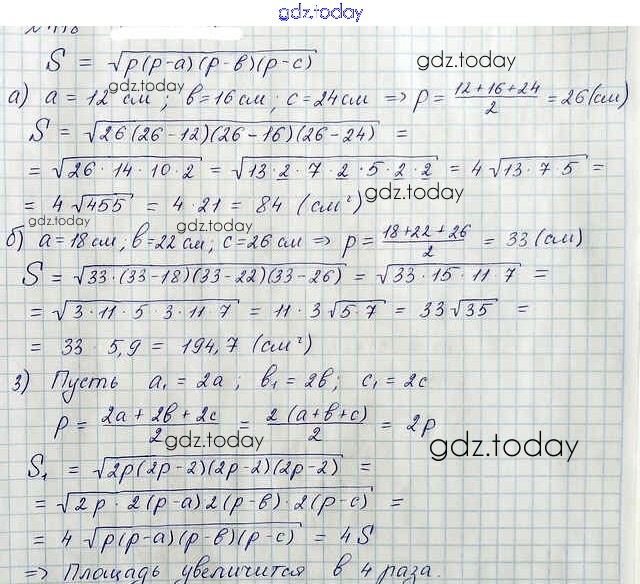 gdz.today
S = √p(p-a)(p-в)(p-c)
gdz.today
gdz.today
а) a = 12 см; в = 16 см; c = 24 см ⇒ p = (12+16+24)/2 = 26 (см)
S = √26(26-12)(26-16)(26-24) =
= √26·14·10·2 = √13·2·7·2·5·2·2 = 4√13·7·5 =
= 4√455 = 4·21 = 84 (см²)
gdz.today
gdz.today
б) a = 18 см; в = 22 см; c = 26 см ⇒ p = (18+22+26)/2 = 33 (см)
S = √33·(33-18)(33-22)(33-26) = √33·15·11·7 =
= √3·11·5·3·11·7 = 11·3√5·7 = 33√35 =
= 33·5,9 = 194,7 (см²)
3) Пусть a₁ = 2a; в₁ = 2в; c₁ = 2c
P = (2a+2в+2c)/2 = 2(a+в+c)/2 = 2p
gdz.today
gdz.today
S₁ = √2p(2p-2)(2p-2)(2p-2) =
= √2p·2(p-a)2(p-в)·2(p-c) =
= 4√p(p-a)(p-в)(p-c) = 4S
⇒ Площадь увеличится в 4 раза.